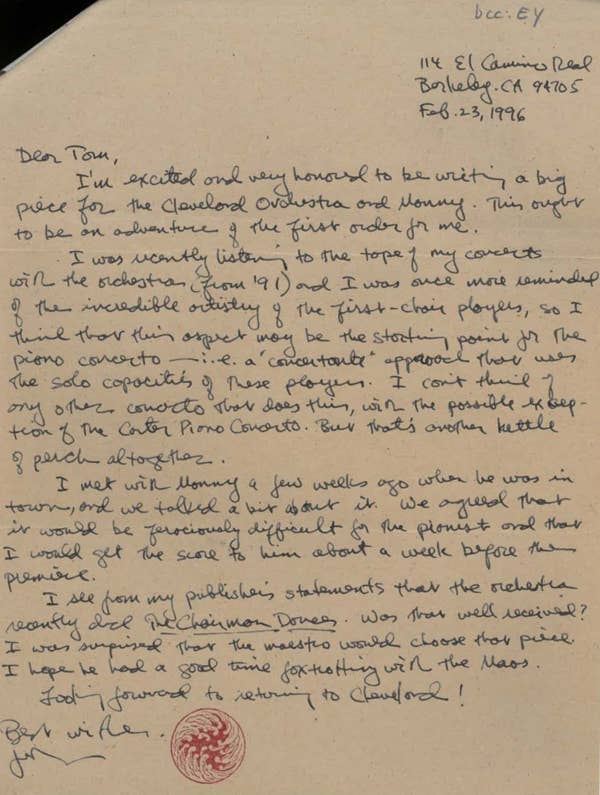 bcc: EY
114 El Camino Real
Berkeley. CA 94705
Feb. 23, 1996
Dear Tom,
I'm excited and very honored to be writing a big
piece for the Cleveland Orchestra and Manny. This ought
to be an adventure of the first order for me.
I was recently listening to the tape of my concerts
with the orchestra (from '91) and I was once more reminded
of the incredible artistry of the first-chair players, so I
think that this aspect may be the starting point for the
piano concerto — i.e. a "concertante" approach that uses
the solo capacities of these players. I can't think of
any other concerto that does this, with the possible excep-
tion of the Carter Piano Concerto. But that's another kettle
of perch altogether.
I met with Manny a few weeks ago when he was in
town, and we talked a bit about it. We agreed that
it would be ferociously difficult for the pianist and that
I would get the score to him about a week before the
première.
I see from my publisher's statements that the orchestra
recently did The Chairman Dances. Was that well received?
I was surprised that the maestro would choose that piece.
I hope he had a good time foxtrotting with the Maos.
Looking forward to returning to Cleveland!
Best wishes.
John